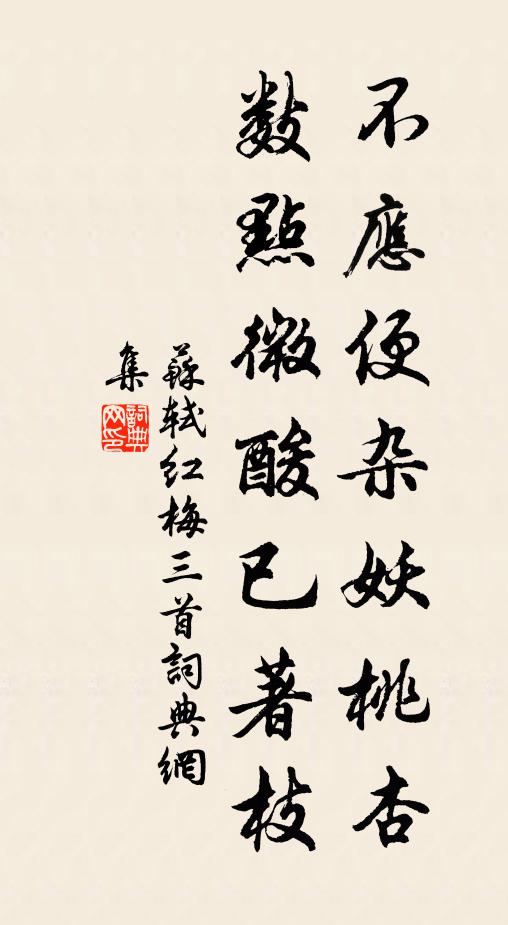 不應便杂妖桃杏
数點微酸已著枝
蘇軾红梅三首詞典網
集
詞典
网印